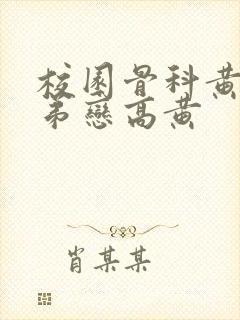 校園骨科黃
弟戀高黃
肖某某